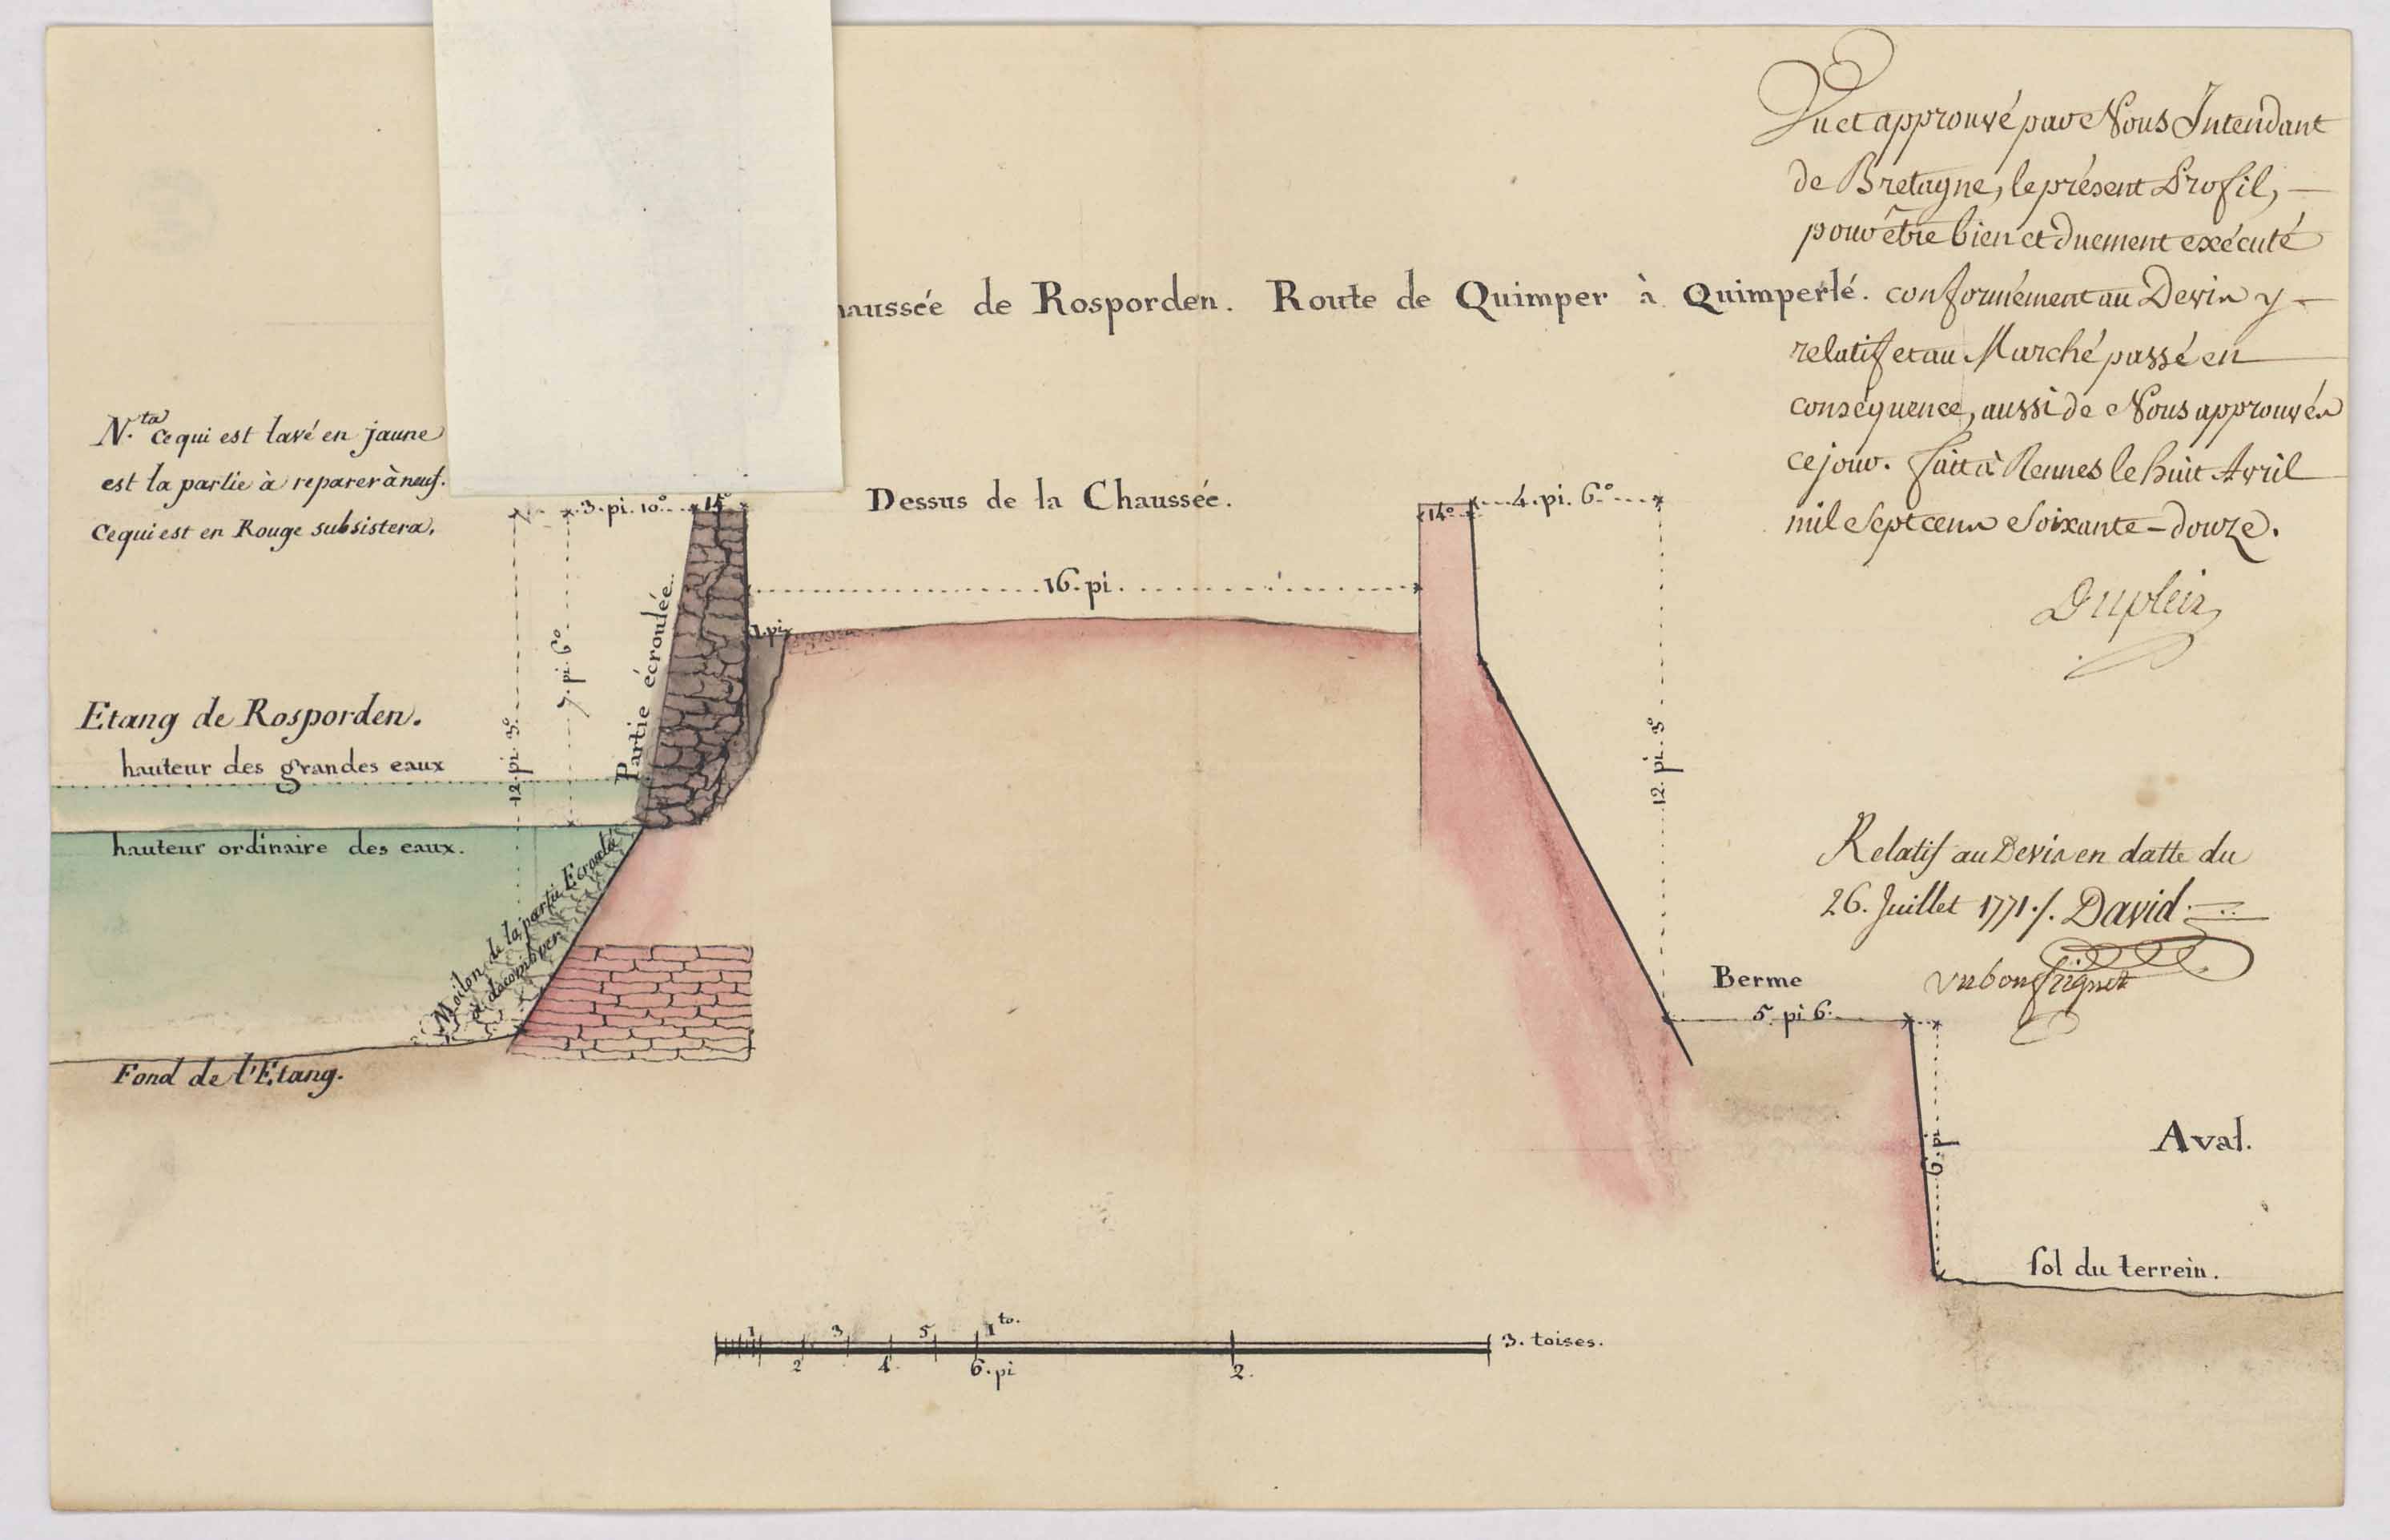 Vu et approuvé par Nous Intendant
de Bretagne, le présent Profil,
pour être bien et duement exécuté
haussée de Rosporden. Route de Quimper à Quimperlé.
conformément au Devis y
relatif et au Marché passé en
conséquence, aussi de Nous approuvés
ce jour. fait à Rennes le huit Avril
mil Sept cens Soixante-douze.
Dupleix
N.ta Ce qui est lavé en jaune
est la partie à reparer à neuf.
Ce qui est en Rouge subsistera.
3. pi. 10°
14°
Dessus de la Chaussée.
14°
4. pi. 6°
16. pi.
1. pi
7. pi. 6°
12. pi. 3°
Partie écroulée.
12. pi. 3°
Etang de Rosporden.
hauteur des grandes eaux
hauteur ordinaire des eaux.
Moilon de la partie Ecroulée
à décombrer
Fond de l'Etang.
Relatif au Devis en datte du
26. Juillet 1771./. David
Berme
5. pi 6.
6. pi
Aval.
sol du terrein.
1 3 5 1.to. 3. toises.
2 4 6. pi 2.